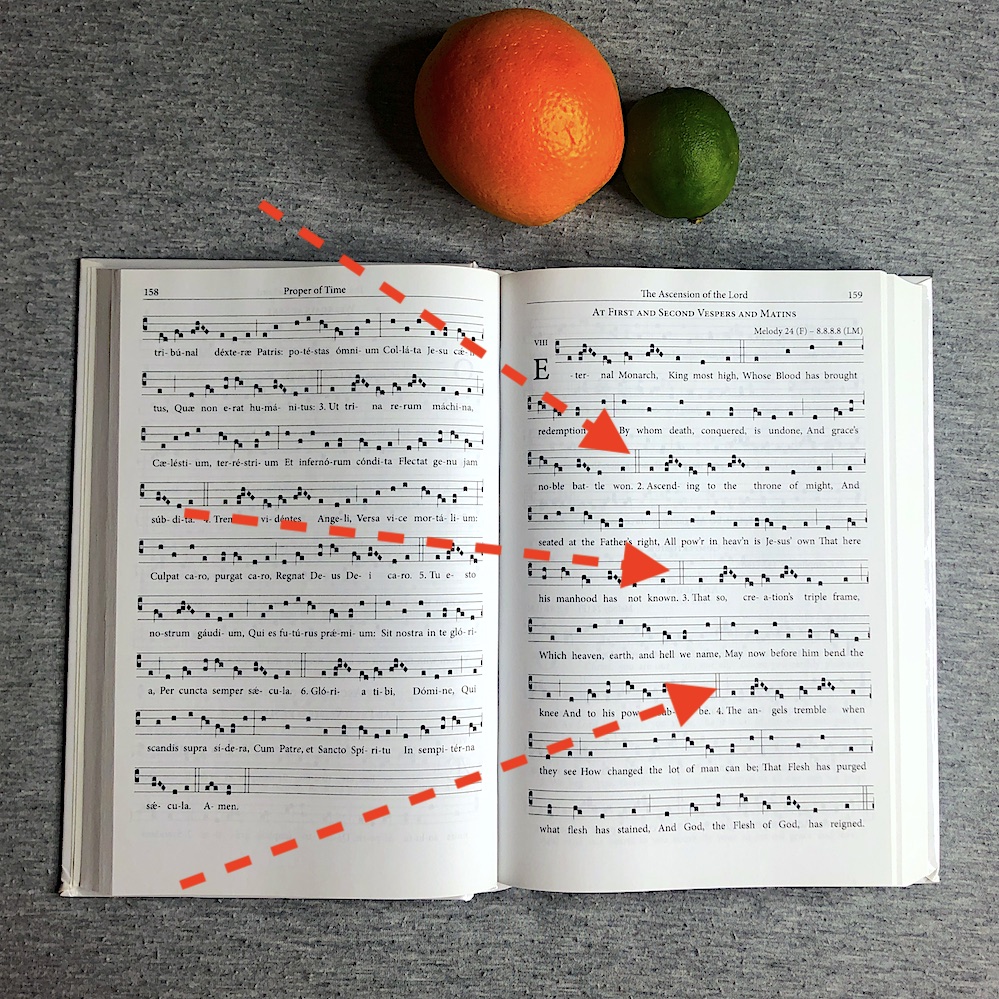 158 Proper of Time
tri- bú-nal déxte-ræ Patris: po-té-stas ómni- um Col-lá-ta Je-su
tus, Quæ non e-rat hu-má- ni-tus: 3. Ut tri- na re-rum máchi-na,
Cæ-lésti- um, ter-ré-stri- um Et infernó-rum cóndi-ta Flectat ge-nu jam
súb- di-ta. vi-déntes Ange-li, Versa vi-ce mor-tá- li- um:
Culpat ca-ro, purgat ca-ro, Regnat De- us De- i ca-ro. 5. Tu e- sto
no-strum gáudi- um, Qui es fu-tú-rus præ-mi- um: Sit nostra in te gló-ri-
a, Per cuncta semper sǽ- cu-la. 6. Gló-ri- a ti-bi, Dómi-ne, Qui
scandis supra si-de-ra, Cum Patre, et Sancto Spí-ri-tu In sempi-tér-na
sǽ- cu-la. A- men.
The Ascension of the Lord 159
At First and Second Vespers and Matins
Melody 24 (F) – 8.8.8.8 (LM)
VIII
E -ter- nal Monarch, King most high, Whose Blood has brought
redemption By whom death, conquered, is undone, And grace's
no-ble bat- tle won. 2. Ascend- ing to the throne of might, And
seated at the Father's right, All pow'r in heav'n is Je-sus' own That here
his manhood has not known. 3. That so, cre- a-tion's triple frame,
Which heaven, earth, and hell we name, May now before him bend the
knee And to his be. 4. The an- gels tremble when
they see How changed the lot of man can be; That Flesh has purged
what flesh has stained, And God, the Flesh of God, has reigned.